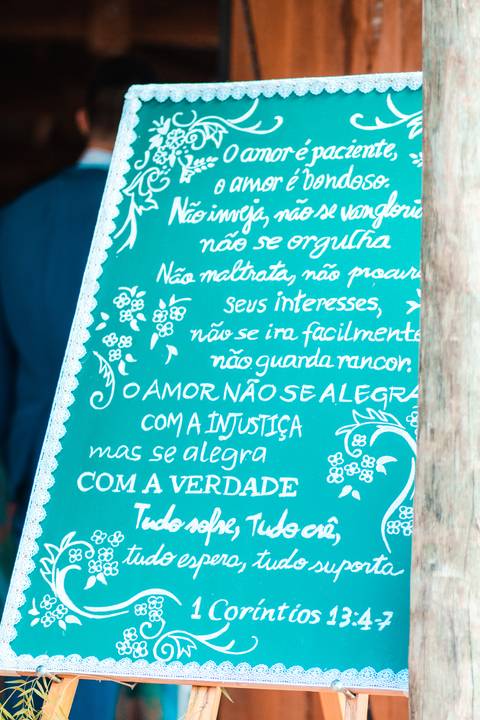 O amor é paciente,
o amor é bondoso.
Não inveja, não se vangloria
não se orgulha
Não maltrata, não procura
seus interesses,
não se ira facilmente
não guarda rancor.
O AMOR NÃO SE ALEGRA
COM A INJUSTIÇA
mas se alegra
COM A VERDADE
Tudo sofre, Tudo crê,
tudo espera, tudo suporta
1 Coríntios 13:4-7